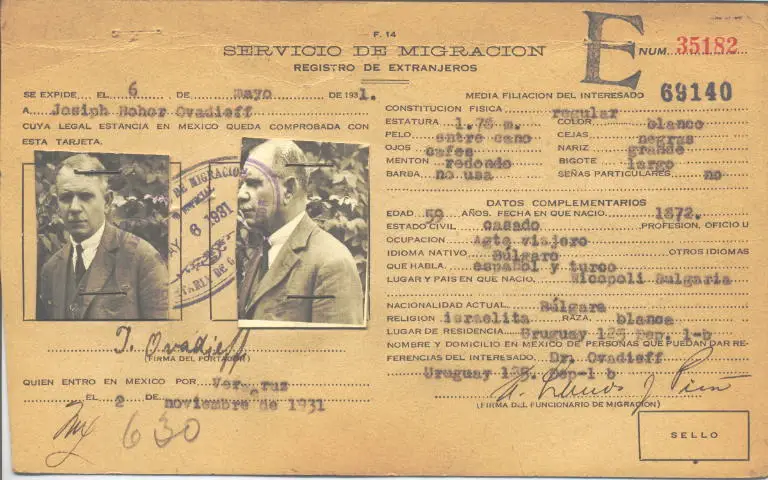 F. 14
SERVICIO DE MIGRACION
REGISTRO DE EXTRANJEROS
E NUM. 35182
69140
SE EXPIDE EL 6 DE mayo DE 1931.
A Josiph Bohor Ovadieff
CUYA LEGAL ESTANCIA EN MEXICO QUEDA COMPROBADA CON
ESTA TARJETA.
DE MIGRACION
6 1931
J. Ovadieff
(FIRMA DEL PORTADOR)
QUIEN ENTRO EN MEXICO POR Veracruz
EL 2 DE noviembre de 1931
630
MEDIA FILIACION DEL INTERESADO
CONSTITUCION FISICA regular
ESTATURA 1.76 m. COLOR blanco
PELO entre cano CEJAS negras
OJOS cafes NARIZ grande
MENTON redondo BIGOTE largo
BARBA no usa SEÑAS PARTICULARES no
DATOS COMPLEMENTARIOS
EDAD 59 AÑOS. FECHA EN QUE NACIO. 1872.
ESTADO CIVIL casado PROFESION, OFICIO U
OCUPACION Agte viajero
IDIOMA NATIVO Búlgaro OTROS IDIOMAS
QUE HABLA. español y turco
LUGAR Y PAIS EN QUE NACIO. Nicopoli Bulgaria
NACIONALIDAD ACTUAL Búlgara
RELIGION israelita RAZA. blanca
LUGAR DE RESIDENCIA. Uruguay 125 Dep. 1-b
NOMBRE Y DOMICILIO EN MEXICO DE PERSONAS QUE PUEDAN DAR RE-
FERENCIAS DEL INTERESADO. Dr. Ovadieff
Uruguay 125. Dep-1 b
(FIRMA DEL FUNCIONARIO DE MIGRACION)
SELLO